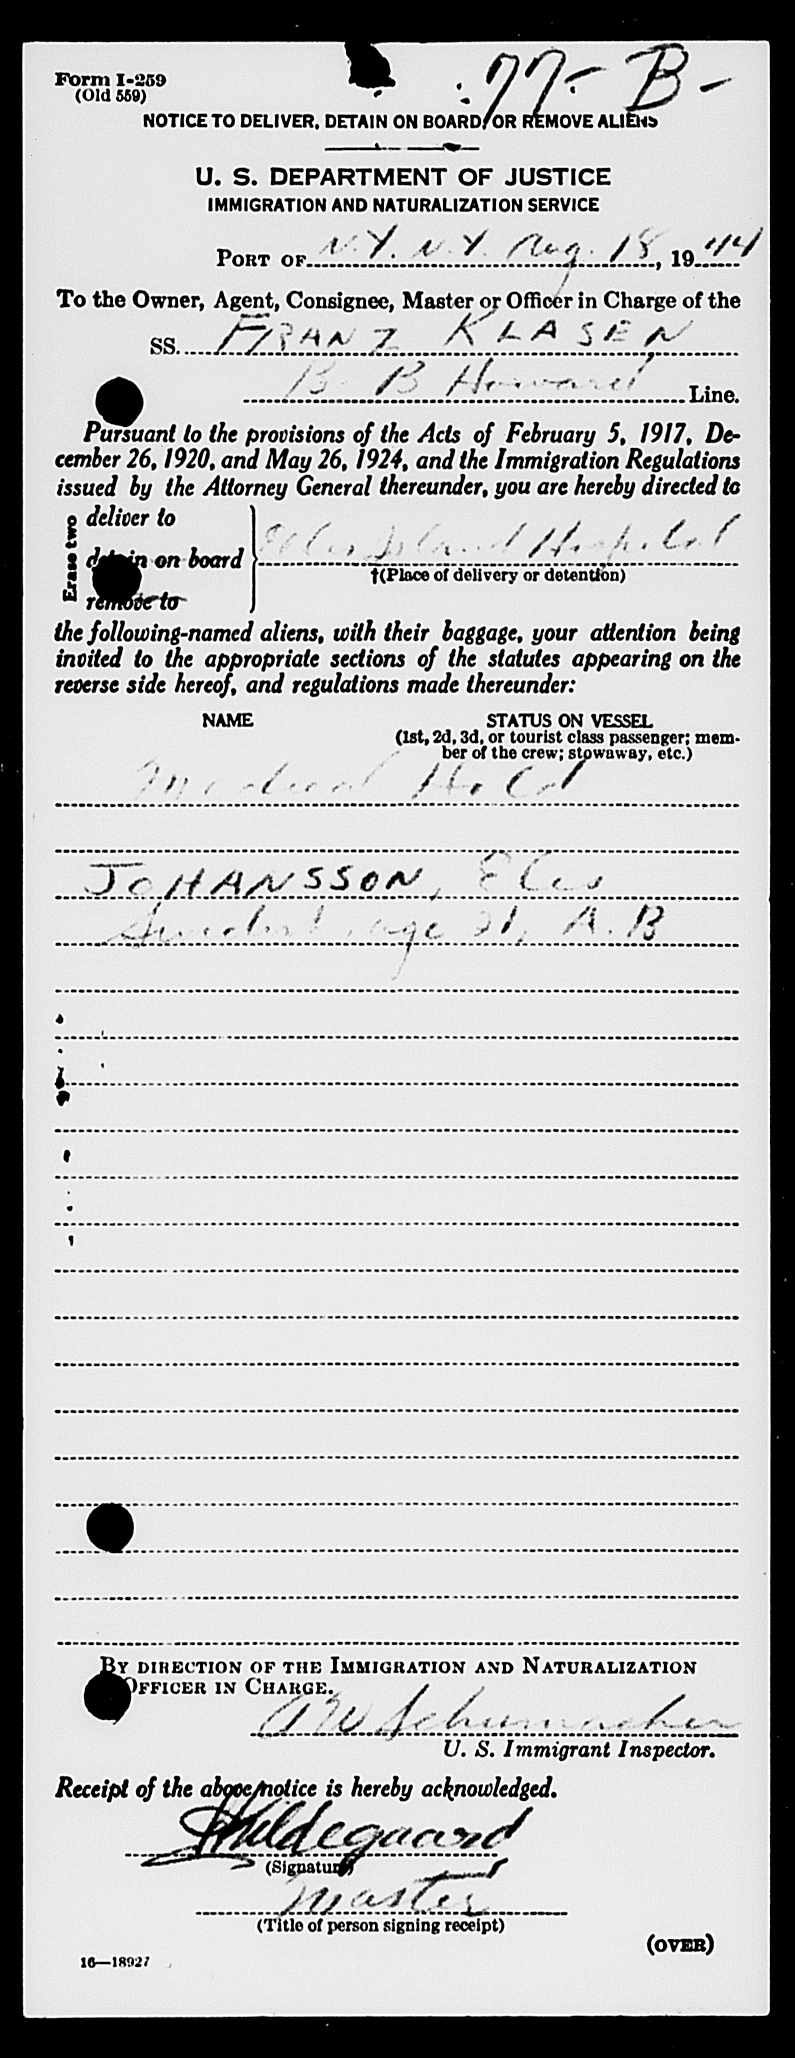 Form I-259
(Old 559)
77-B-
NOTICE TO DELIVER, DETAIN ON BOARD, OR REMOVE ALIENS
U. S. DEPARTMENT OF JUSTICE
IMMIGRATION AND NATURALIZATION SERVICE
PORT OF N.Y. N.Y. Aug. 18, 1944
To the Owner, Agent, Consignee, Master or Officer in Charge of the
SS. FRANZ KLASEN
B. B Howard Line.
Pursuant to the provisions of the Acts of February 5, 1917, De-
cember 26, 1920, and May 26, 1924, and the Immigration Regulations
issued by the Attorney General thereunder, you are hereby directed to
Erase two
deliver to
detain on board
remove to
Ellis Island Hospital
†(Place of delivery or detention)
the following-named aliens, with their baggage, your attention being
invited to the appropriate sections of the statutes appearing on the
reverse side hereof, and regulations made thereunder:
NAME STATUS ON VESSEL
(1st, 2d, 3d, or tourist class passenger; mem-
ber of the crew; stowaway, etc.)
Medical Hold
JOHANSSON,
Swedish, age 21, A.B
BY DIRECTION OF THE IMMIGRATION AND NATURALIZATION
OFFICER IN CHARGE.
Schumacher
U. S. Immigrant Inspector.
Receipt of the above notice is hereby acknowledged.
Hildegaard
(Signature)
Master
(Title of person signing receipt)
(OVER)
16—18927